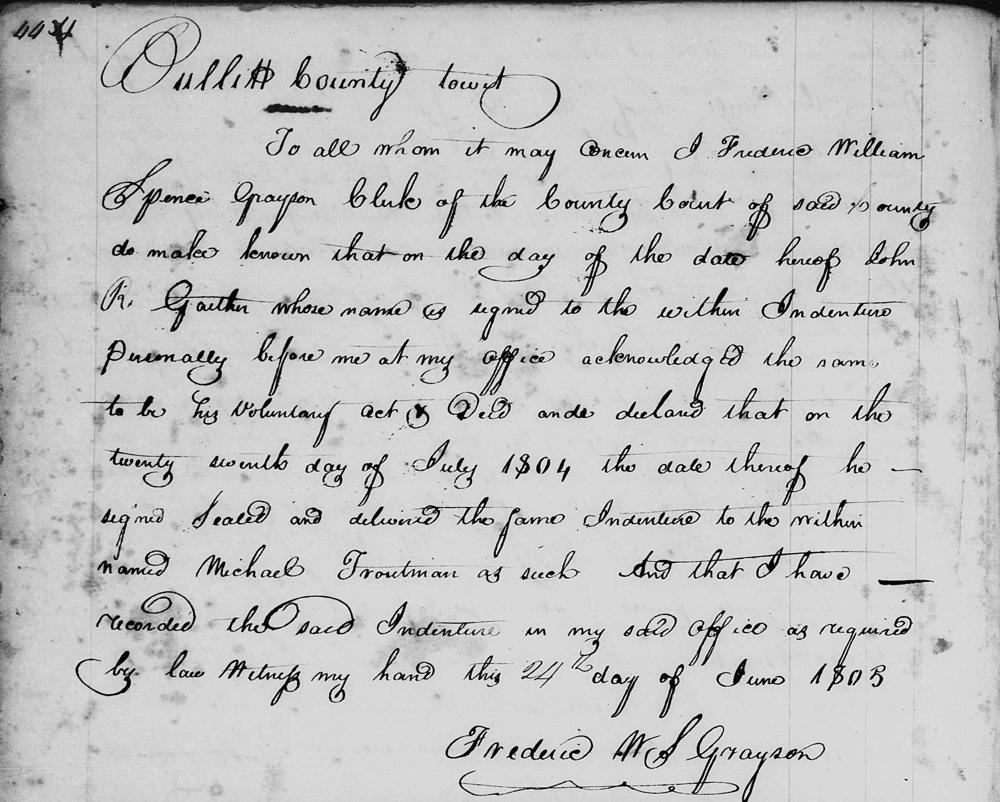 444
Bullitt County towit
To all whom it may Concern I Frederic William
Spence Grayson Clerk of the County Court of said County
do make known that on the day of the date hereof John
R. Gaither whose name is signed to the within Indenture
Personally before me at my office acknowledged the same
to be his Voluntary act & Deed and declared that on the
twenty seventh day of July 1804 the date thereof he —
signed Sealed and delivered the same Indenture to the within
named Michael Troutman as such And that I have —
recorded the said Indenture in my said office as required
by law Witness my hand this 24th day of June 1805
Frederic W S Grayson